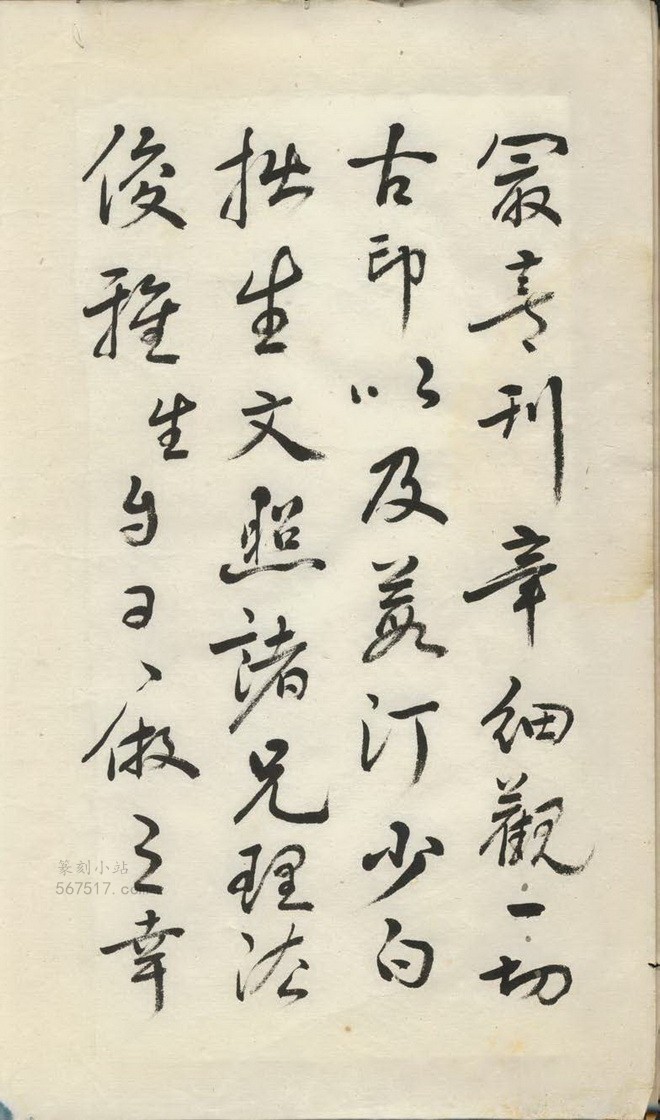 最喜刊章細觀一切
古印以及蓉汀少白
拙生文照諸兄理法
俊雅生每日〻倣之幸
篆刻小站
567517.com